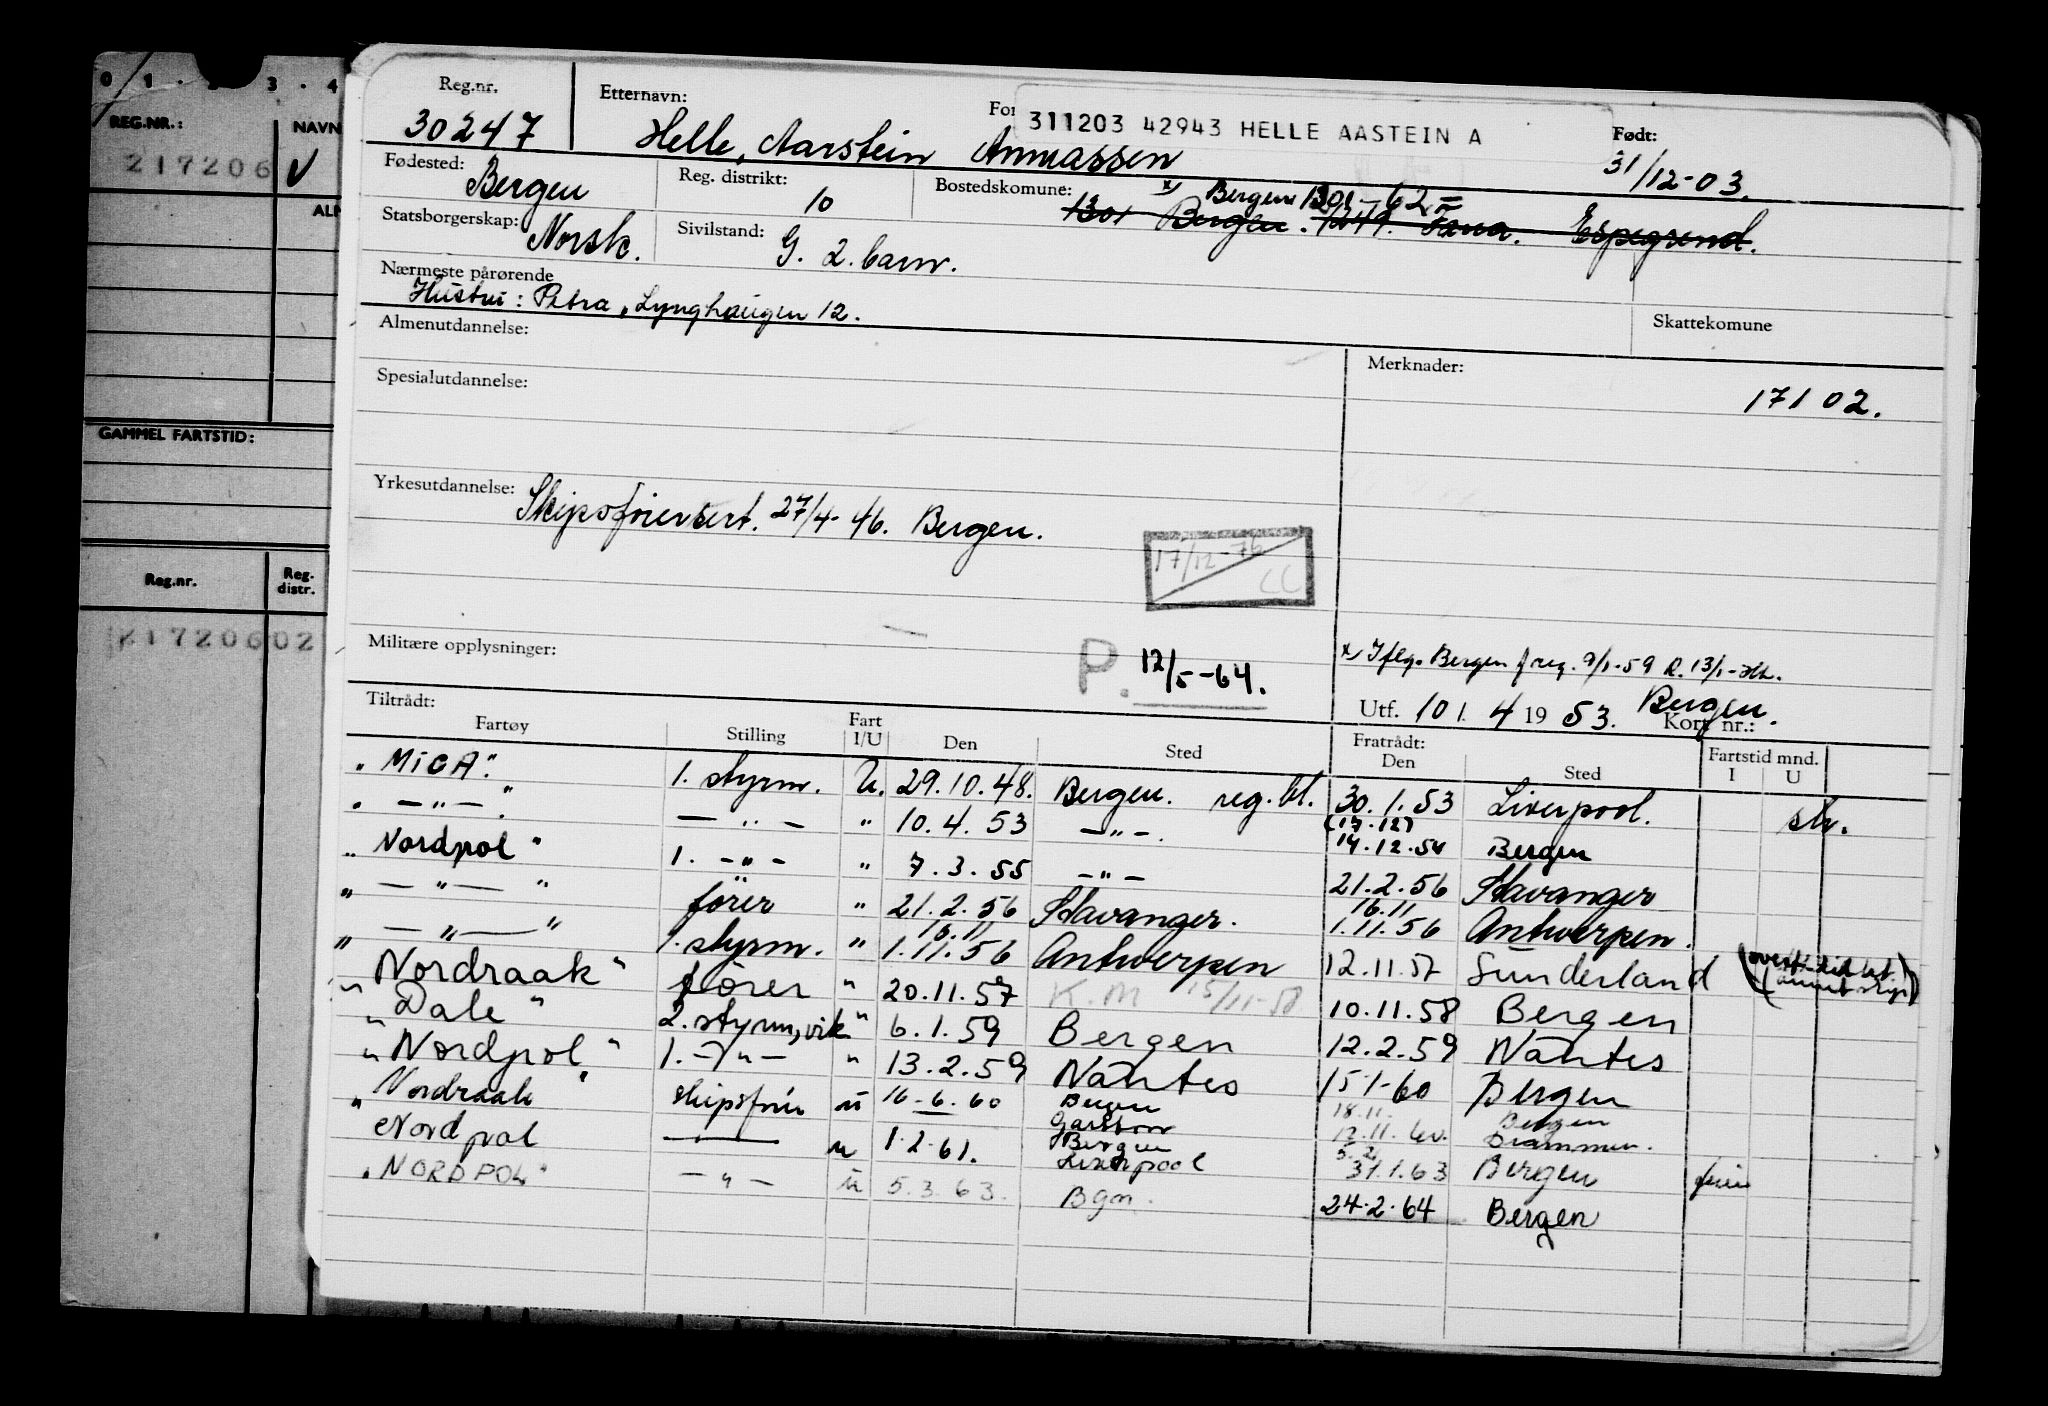 0 1 . 3 . 4
REG.NR.: NAVN
217206 ✓
GAMMEL FARTSTID:
Reg.nr. Reg. distr.
21720602
Reg.nr. Etternavn: For 311203 42943 HELLE AASTEIN A Født:
30247 Helle, Aarstein Anmassen 31/12-03.
Fødested: Reg. distrikt: Bostedskomune: x) Bergen 1301-62
Bergen 10 1301 Bergen. 1249. Fana. Espegrend.
Statsborgerskap: Sivilstand:
Norsk. G. 2. barn.
Nærmeste pårørende
Hustru: Petra, Lynghaugen 12.
Almenutdannelse: Skattekomune
Spesialutdannelse: Merknader:
17102.
Yrkesutdannelse: Skipsførersert. 27/4-46. Bergen.
17/12-76
CC
Militære opplysninger: P. 12/5-64.
x) Iflg. Bergen f reg. 9/1-59 R. 13/1-
Utf. 10 1. 4 19 53. Bergen. Kort nr.:
Tiltrådt: Fratrådt: Fartstid mnd.
Fartøy Stilling Fart I/U Den Sted Den Sted I U
"MiCA". 1. styrm. U. 29.10.48. Bergen. reg. bl. 30.1.53 Liverpool. sk.
" — " — " — " — " 10.4.53 — " — (17.12) 14.12.54 Bergen
"Nordpol" 1. — " — " 7.3.55 — " — 21.2.56 Stavanger
" — " — " fører " 21.2.56 Stavanger. 16.11 1.11.56 Antwerpen.
" — " — " 1. styrm. " 16.11 1.11.56 Antwerpen 12.11.57 Sunderland
"Nordraak" fører " 20.11.57 K.M 15/11-58 10.11.58 Bergen
"Dale" 2. styrm, vik " 6.1.59 Bergen 12.2.59 Nantes
"Nordpol" 1. — " — " 13.2.59 Nantes 15-1-60 Bergen
"Nordraak" skipsfører u 16-6-60 Bergen 18.11. Bergen
Nordpol — u 1-2-61. Bergen Liverpool 31.1.63 Bergen
"NORDPOL" — " — u 5.3.63. Bgn. 24.2.64 Bergen